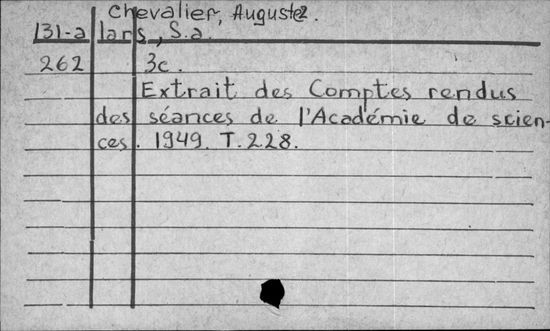 Chevalier, Auguste.
131-a lars, S.a.
262 3c.
Extrait des Comptes rendus
des séances de l'Académie de scien-
ces. 1949. T.228.